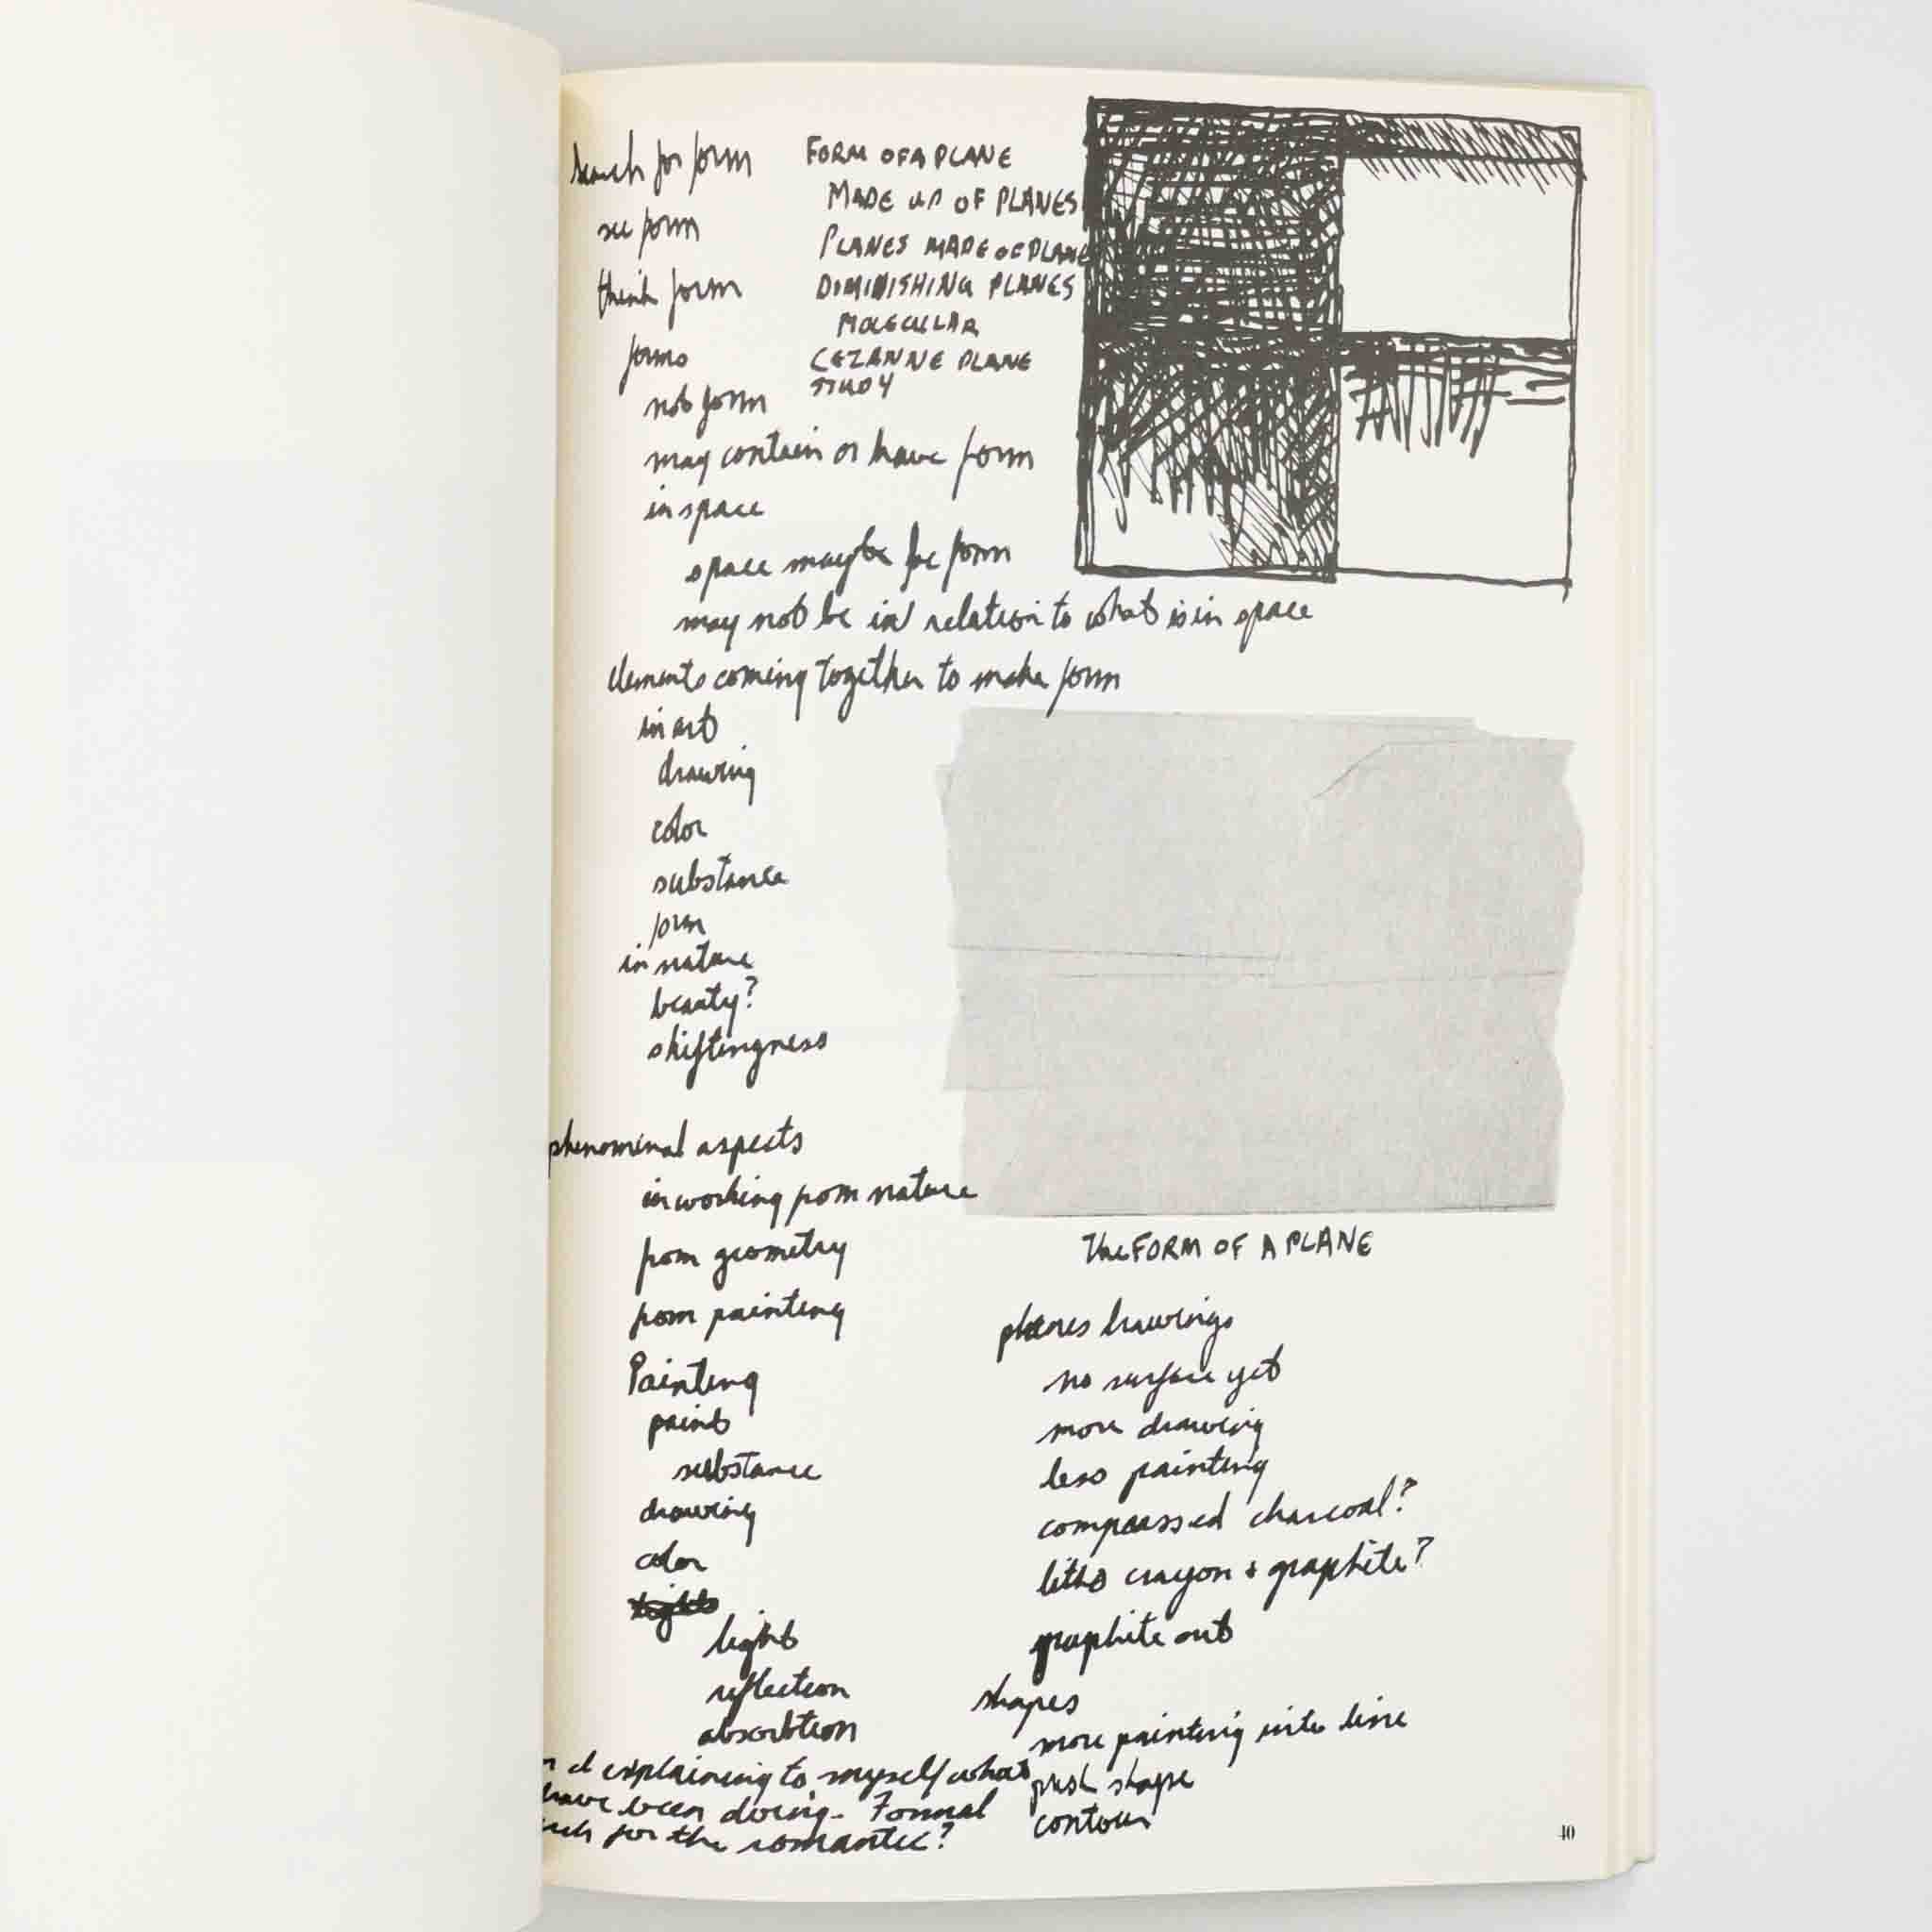 search for form
see form
think form
forms
not form
may contain or have form
in space
space maybe be form
may not be in relation to what is in space
elements coming together to make form
in art
drawing
color
substance
form
in nature
beauty?
shiftingness
phenominal aspects
in working from nature
from geometry
from painting
Painting
paint
substance
drawing
color
light
reflection
absorbtion
I explaining to myself what
have been doing. Formal
for the romantic?
FORM OF A PLANE
MADE UP OF PLANES
PLANES MADE OF PLANE
DIMINISHING PLANES
MOLECULAR
CEZANNE PLANE
STUDY
The FORM OF A PLANE
planes drawings
no surface yet
more drawing
less painting
compressed charcoal?
litho crayon + graphite?
graphite out
shapes
more painting into line
push shape
contour
40